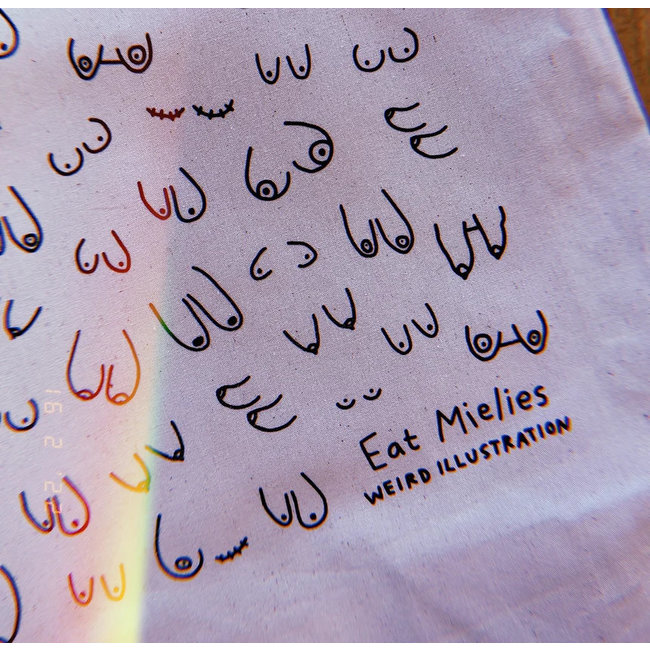 Eat Mielies
WEIRD ILLUSTRATION